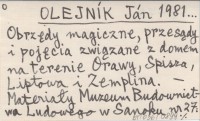 OLEJNÍK Ján 1981...
Obrzędy magiczne, przesądy
i pojęcia związane z domem
na terenie Orawy, Spisza,
Liptowa i Zemplina. –
Materiały Muzeum Budownict-
wa Ludowego w Sanoku nr 27: